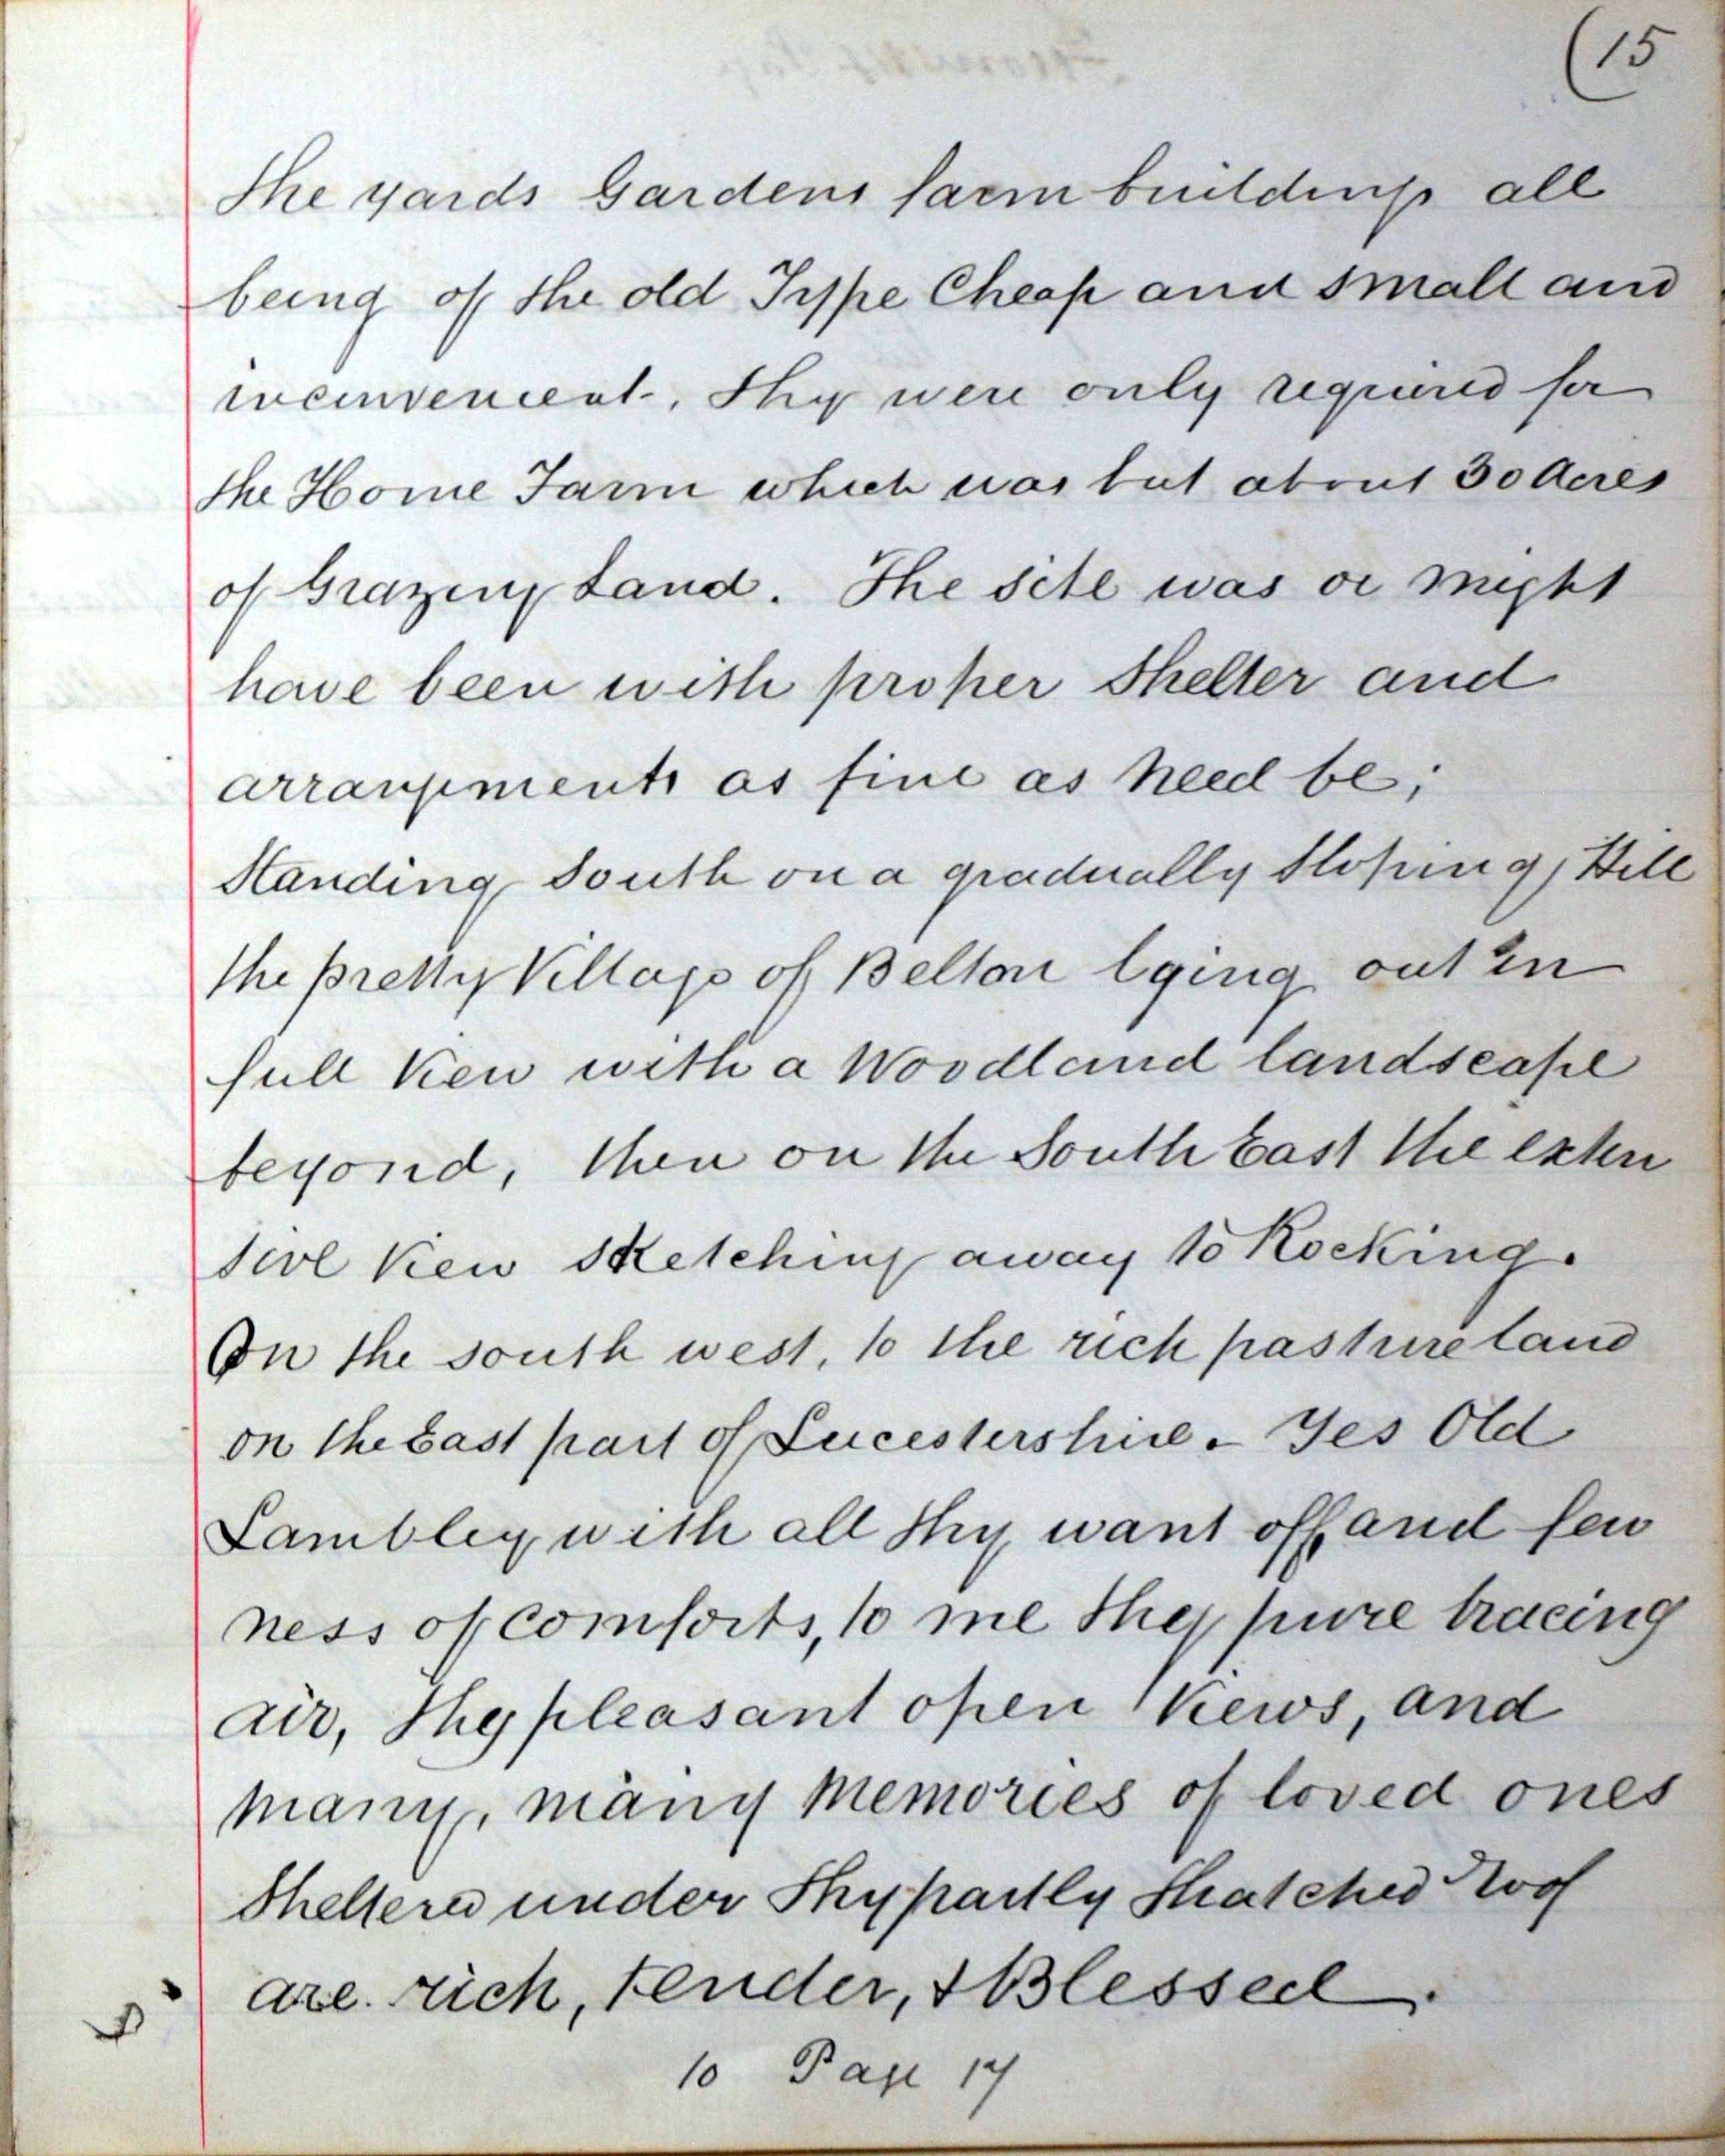 (15
The yards Gardens farm buildings all
being of the old Type Cheap and small and
inconvenient, They were only required for
the Home Farm which was but about 30 Acres
of Grazing Land. The site was or might
have been with proper Shelter and
arrangements as fine as need be;
Standing South on a gradually Sloping Hill
the pretty Village of Belton lying out in
full View with a Woodland landscape
beyond, then on the South East the exten
sive View stretching away to Rocking.
On the south west, to the rich pasture land
on the East part of Leicestershire. Yes Old
Lambley, with all thy want of and few
ness of comforts, to me they pure bracing
air, Thy pleasant open Views, and
many, many Memories of loved ones
Sheltered under Thy partly thatched Roof
are rich, tender, & Blessed.
to Page 17